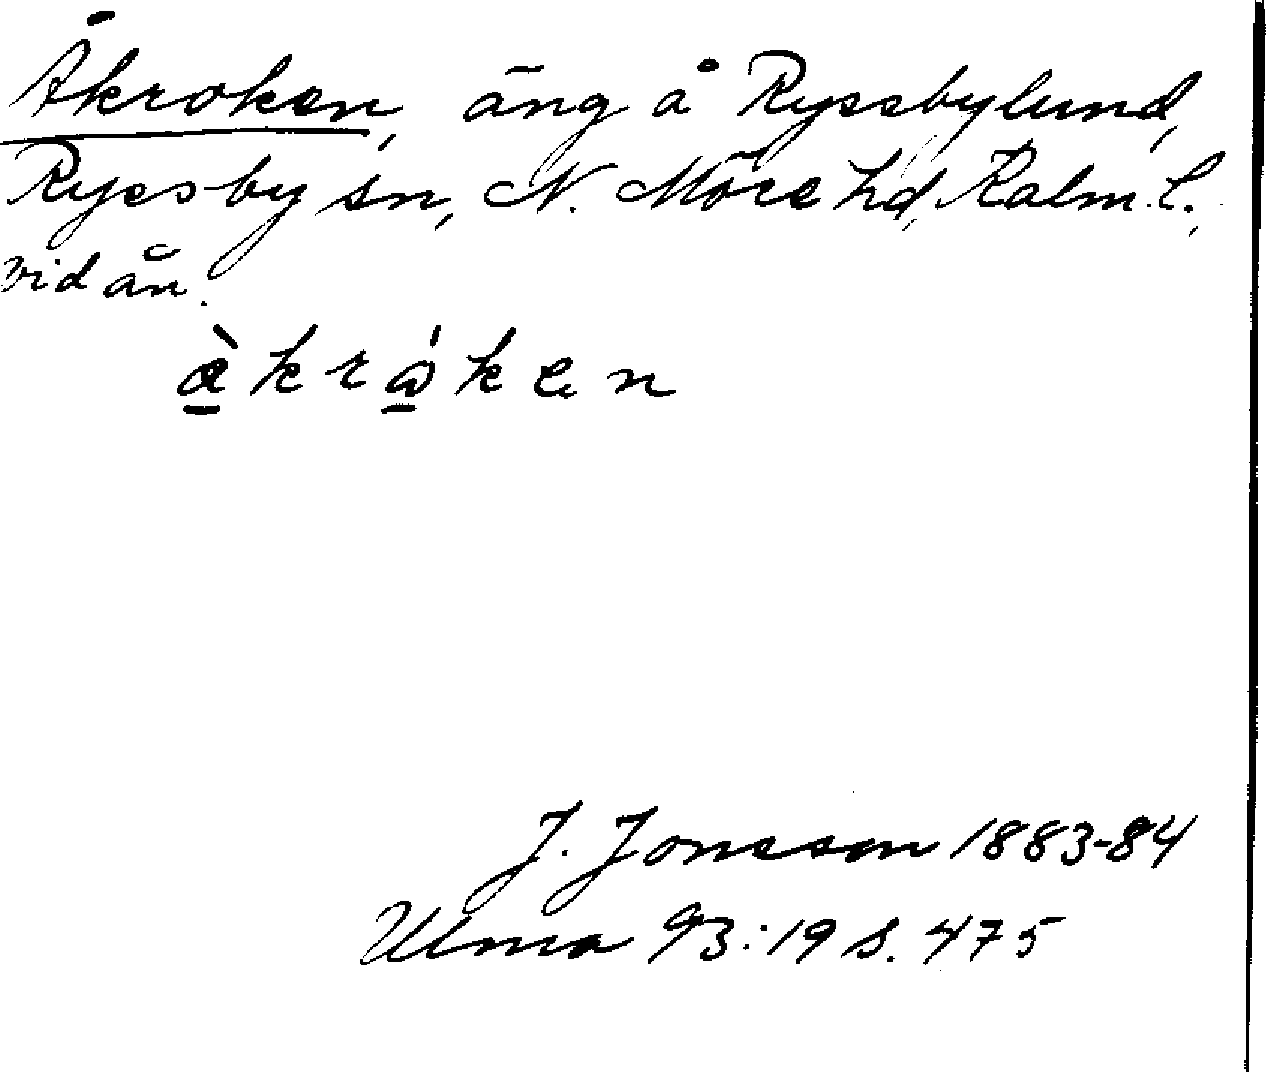 Åkroken, äng å Ryssbylund,
Ryssby sn, N. Möre hd, Kalm. l.,
vid ån.
J. Jonsson 1883-84
Ulma 93:19 s. 475